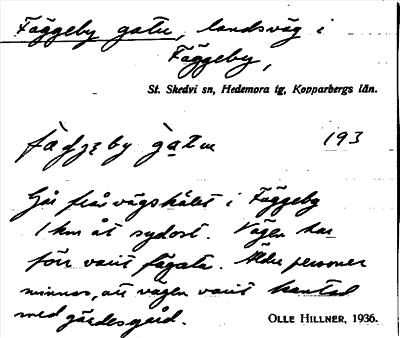 Fäggeby gatu, landsväg i
Fäggeby,
St. Skedvi sn, Hedemora tg, Kopparbergs län.
193
Går från vägskälet i Fäggeby
1 km åt sydost. Vägen har
förr varit fägata. Äldre personer
minnas, att vägen varit kantad
med gärdesgård.
OLLE HILLNER, 1936.